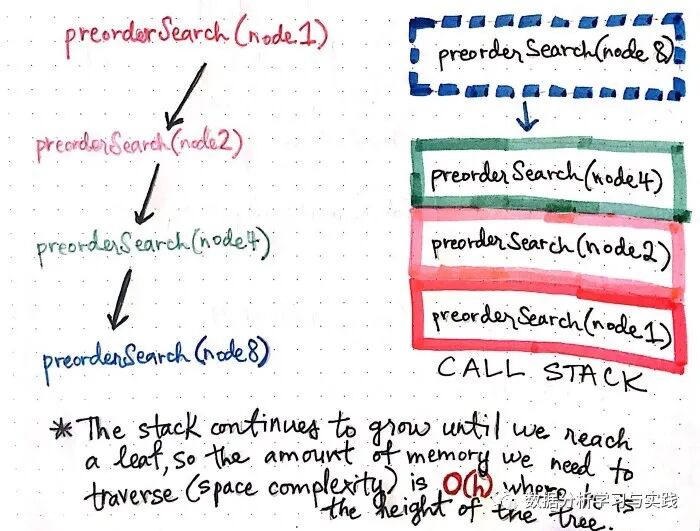 preorderSearch(node1)
preorderSearch(node2)
preorderSearch(node4)
preorderSearch(node8)
preorderSearch(node 8)
preorderSearch(node4)
preorderSearch(node2)
preorderSearch(node1)
CALL STACK
* The stack continues to grow until we reach
a leaf, so the amount of memory we need to
traverse (space complexity) is O(h) where h is
the height of the tree.
数据分析学习与实践